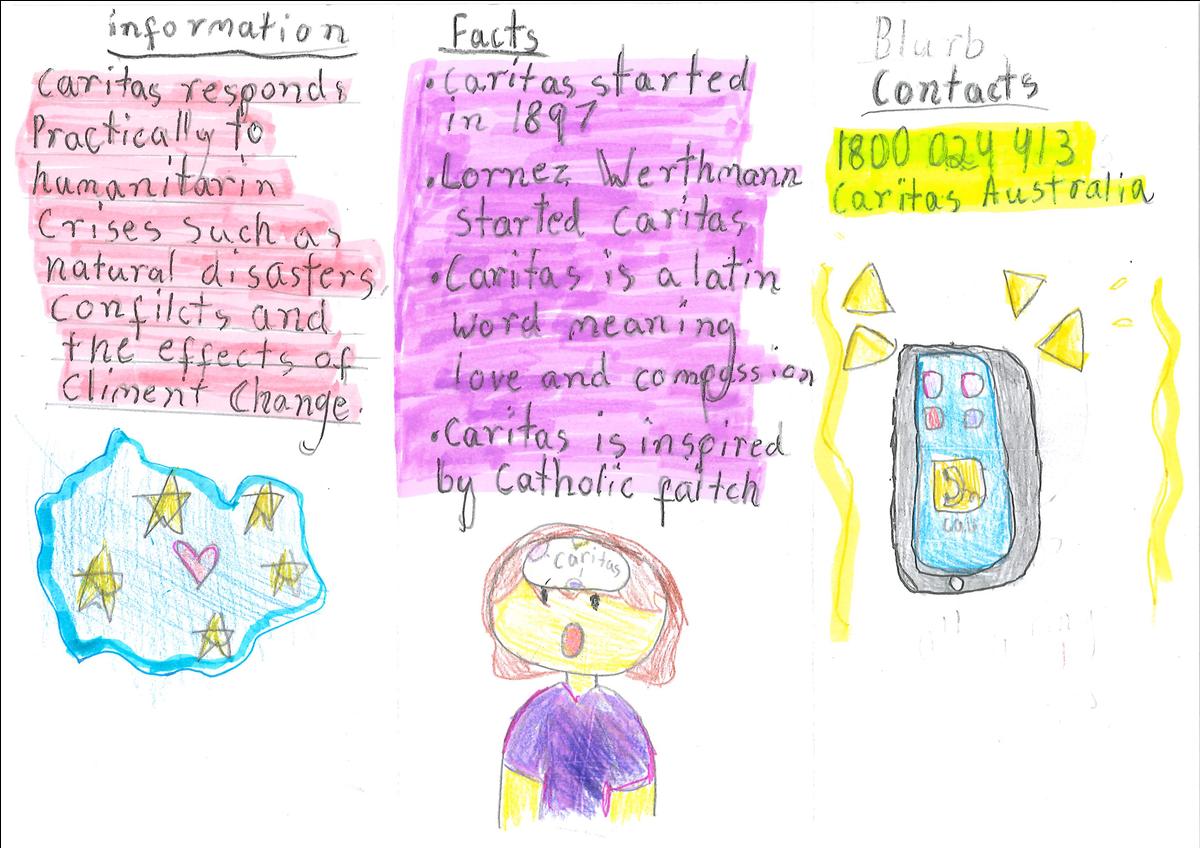 information
Caritas responds
Practically to
humanitarin
Crises such as
natural disasters,
confilcts and
the effects of
Climent Change.
Facts
• Caritas started
in 1897
• Lornez Werthmann
started Caritas
• Caritas is a latin
word meaning
love and compassion
• Caritas is inspired
by Catholic faitch
caritas
Blurb
Contacts
1800 024 413
Caritas Australia
Call